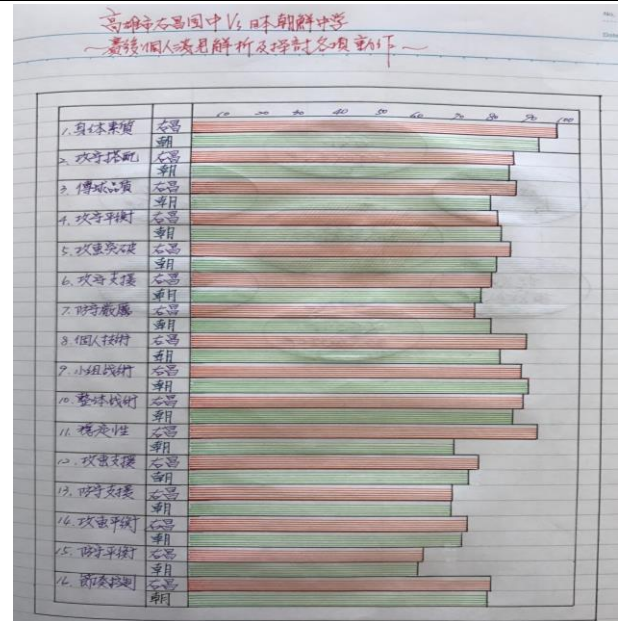 高雄市右昌国中 Vs 日本朝鮮中学
～最後個人淺見解析及探討各項動作～
10 20 30 40 50 60 70 80 90 100
1. 身体素質 右昌
朝
2. 攻守搭配 右昌
朝
3. 傳球品質 右昌
朝
4. 攻守平衡 右昌
朝
5. 攻擊突破 右昌
朝
6. 攻守支援 右昌
朝
7. 防守嚴厲 右昌
朝
8. 個人技術 右昌
朝
9. 小組战術 右昌
朝
10. 整体战術 右昌
朝
11. 穩定性 右昌
朝
12. 攻擊支援 右昌
朝
13. 防守支援 右昌
朝
14. 攻擊平衡 右昌
朝
15. 防守平衡 右昌
朝
16. 節奏控制 右昌
朝